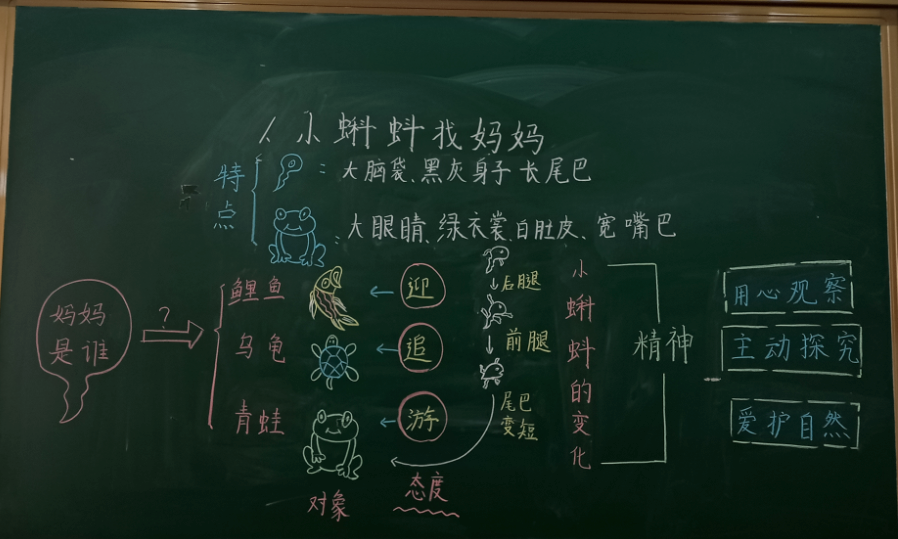 1、小蝌蚪找妈妈
特点
：大脑袋、黑灰身子 长尾巴
：大眼睛、绿衣裳、白肚皮、宽嘴巴
妈妈是谁
？
鲤鱼
迎
后腿
乌龟
追
前腿
青蛙
游
尾巴变短
对象
态度
小蝌蚪的变化
精神
用心观察
主动探究
爱护自然